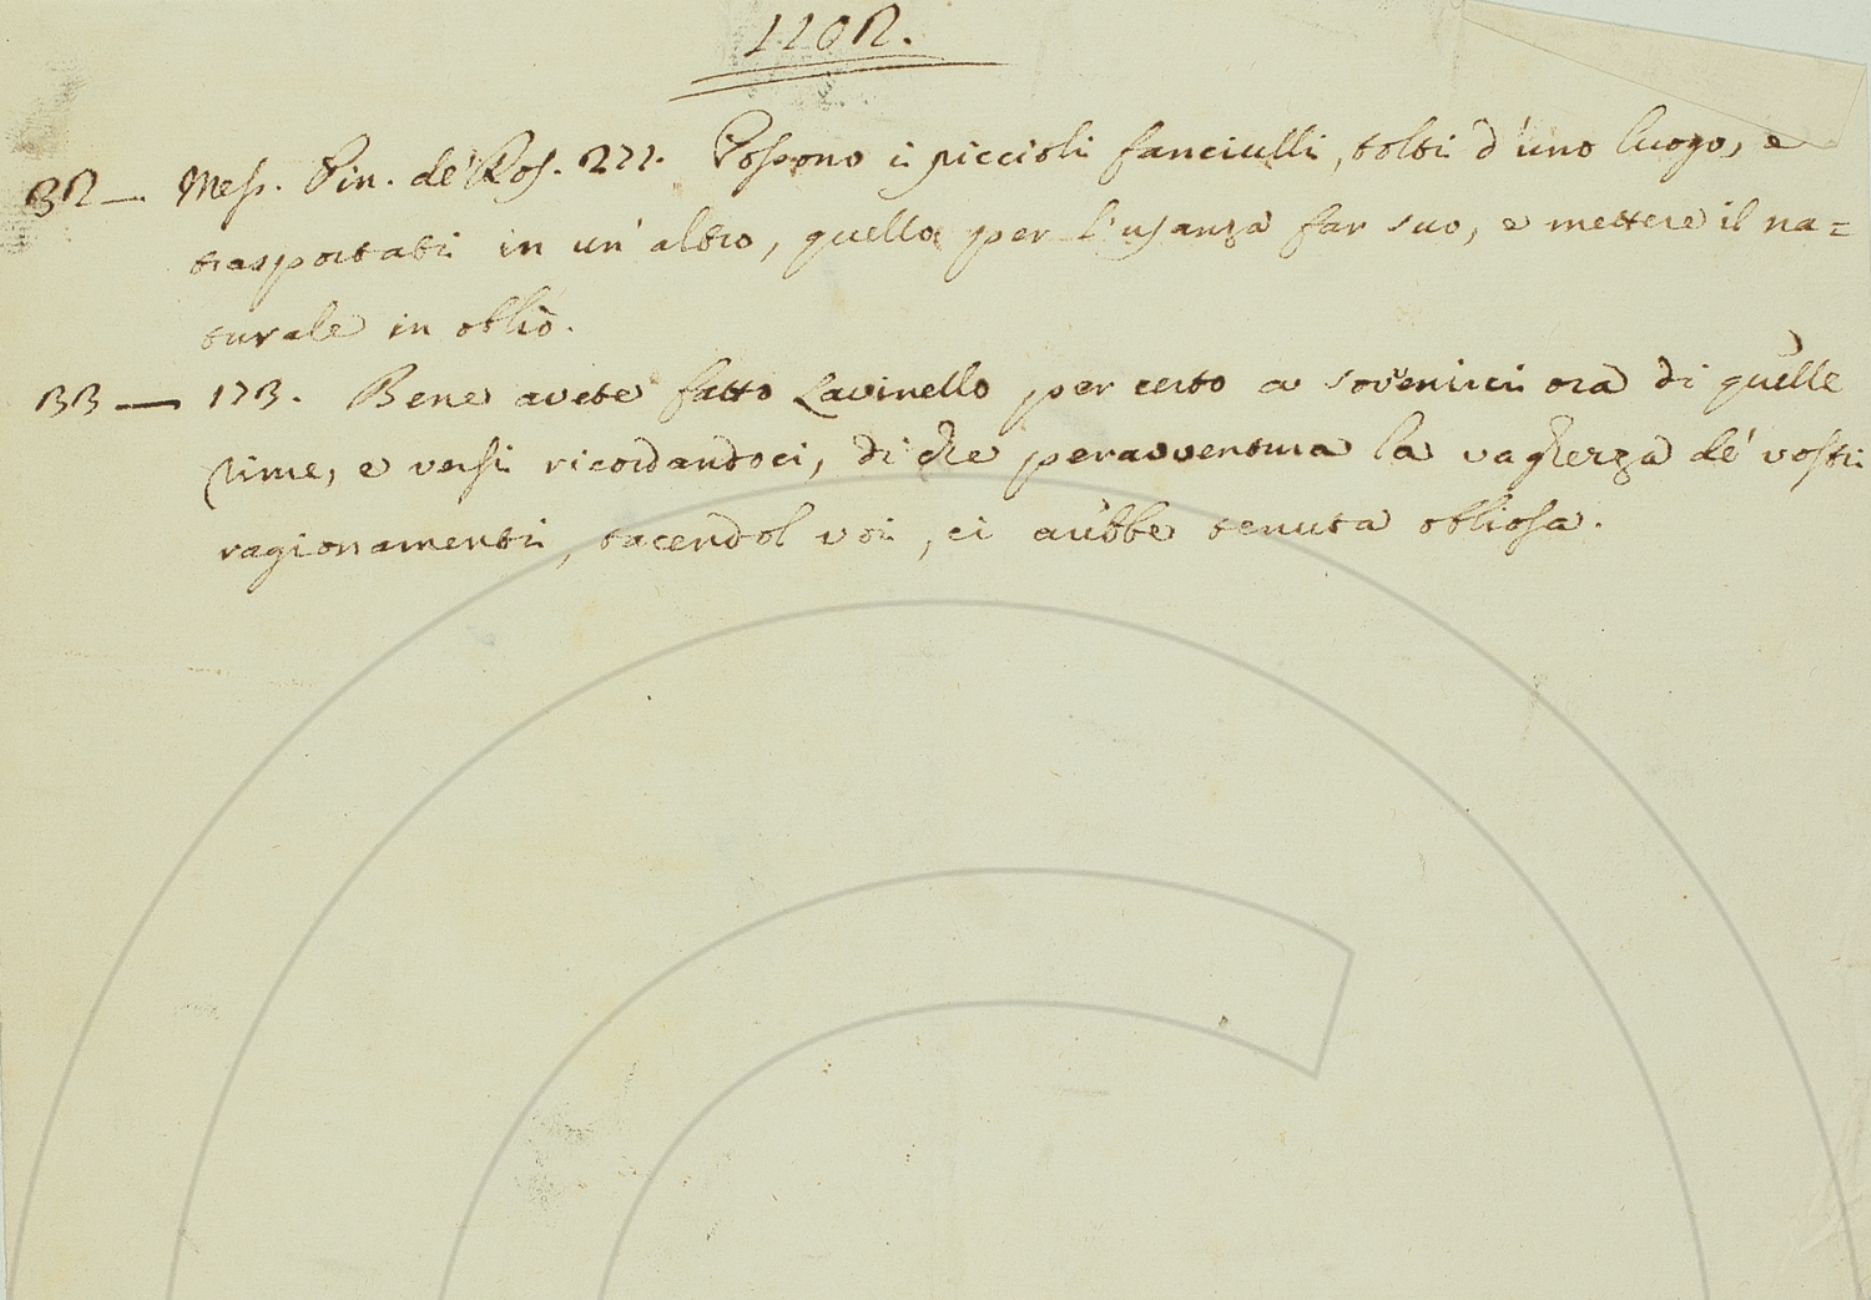 1102.
32 — Mess. Pin. de' Ros. 271. Possono i piccioli fanciulli, tolti d'uno luogo, e
trasportati in un' altro, quello per l'usanza far suo, e mettere il na=
turale in oblio.
33 — 173. Bene avete fatto Lavinello per certo a sovenirci ora di quelle
rime, e versi ricordandoci, di che peravventura la vaghezza de' vostri
ragionamenti, tacendol voi, ci aurebbe tenuta obliosa.